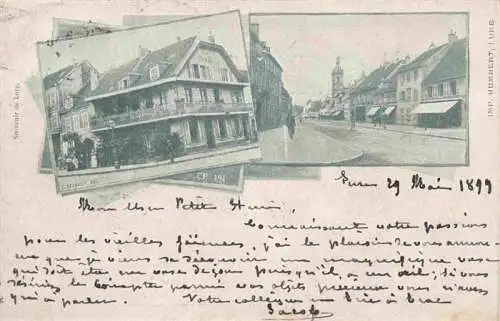 Souvenir de Lure.
IMP. HUMBERT, LURE
Lure 29 Mai 1899
Mon Petit Henri
Connaissant votre passion
pour les vieilles faïences, j'ai le plaisir de vous annon-
ce que je viens de découvrir un magnifique vase
qui doit être un vase de puisqu'il a un œil; si vous
désirez le compter parmi vos objets précieux vous n'avez
qu'à parler. Votre collègue en
Jacob